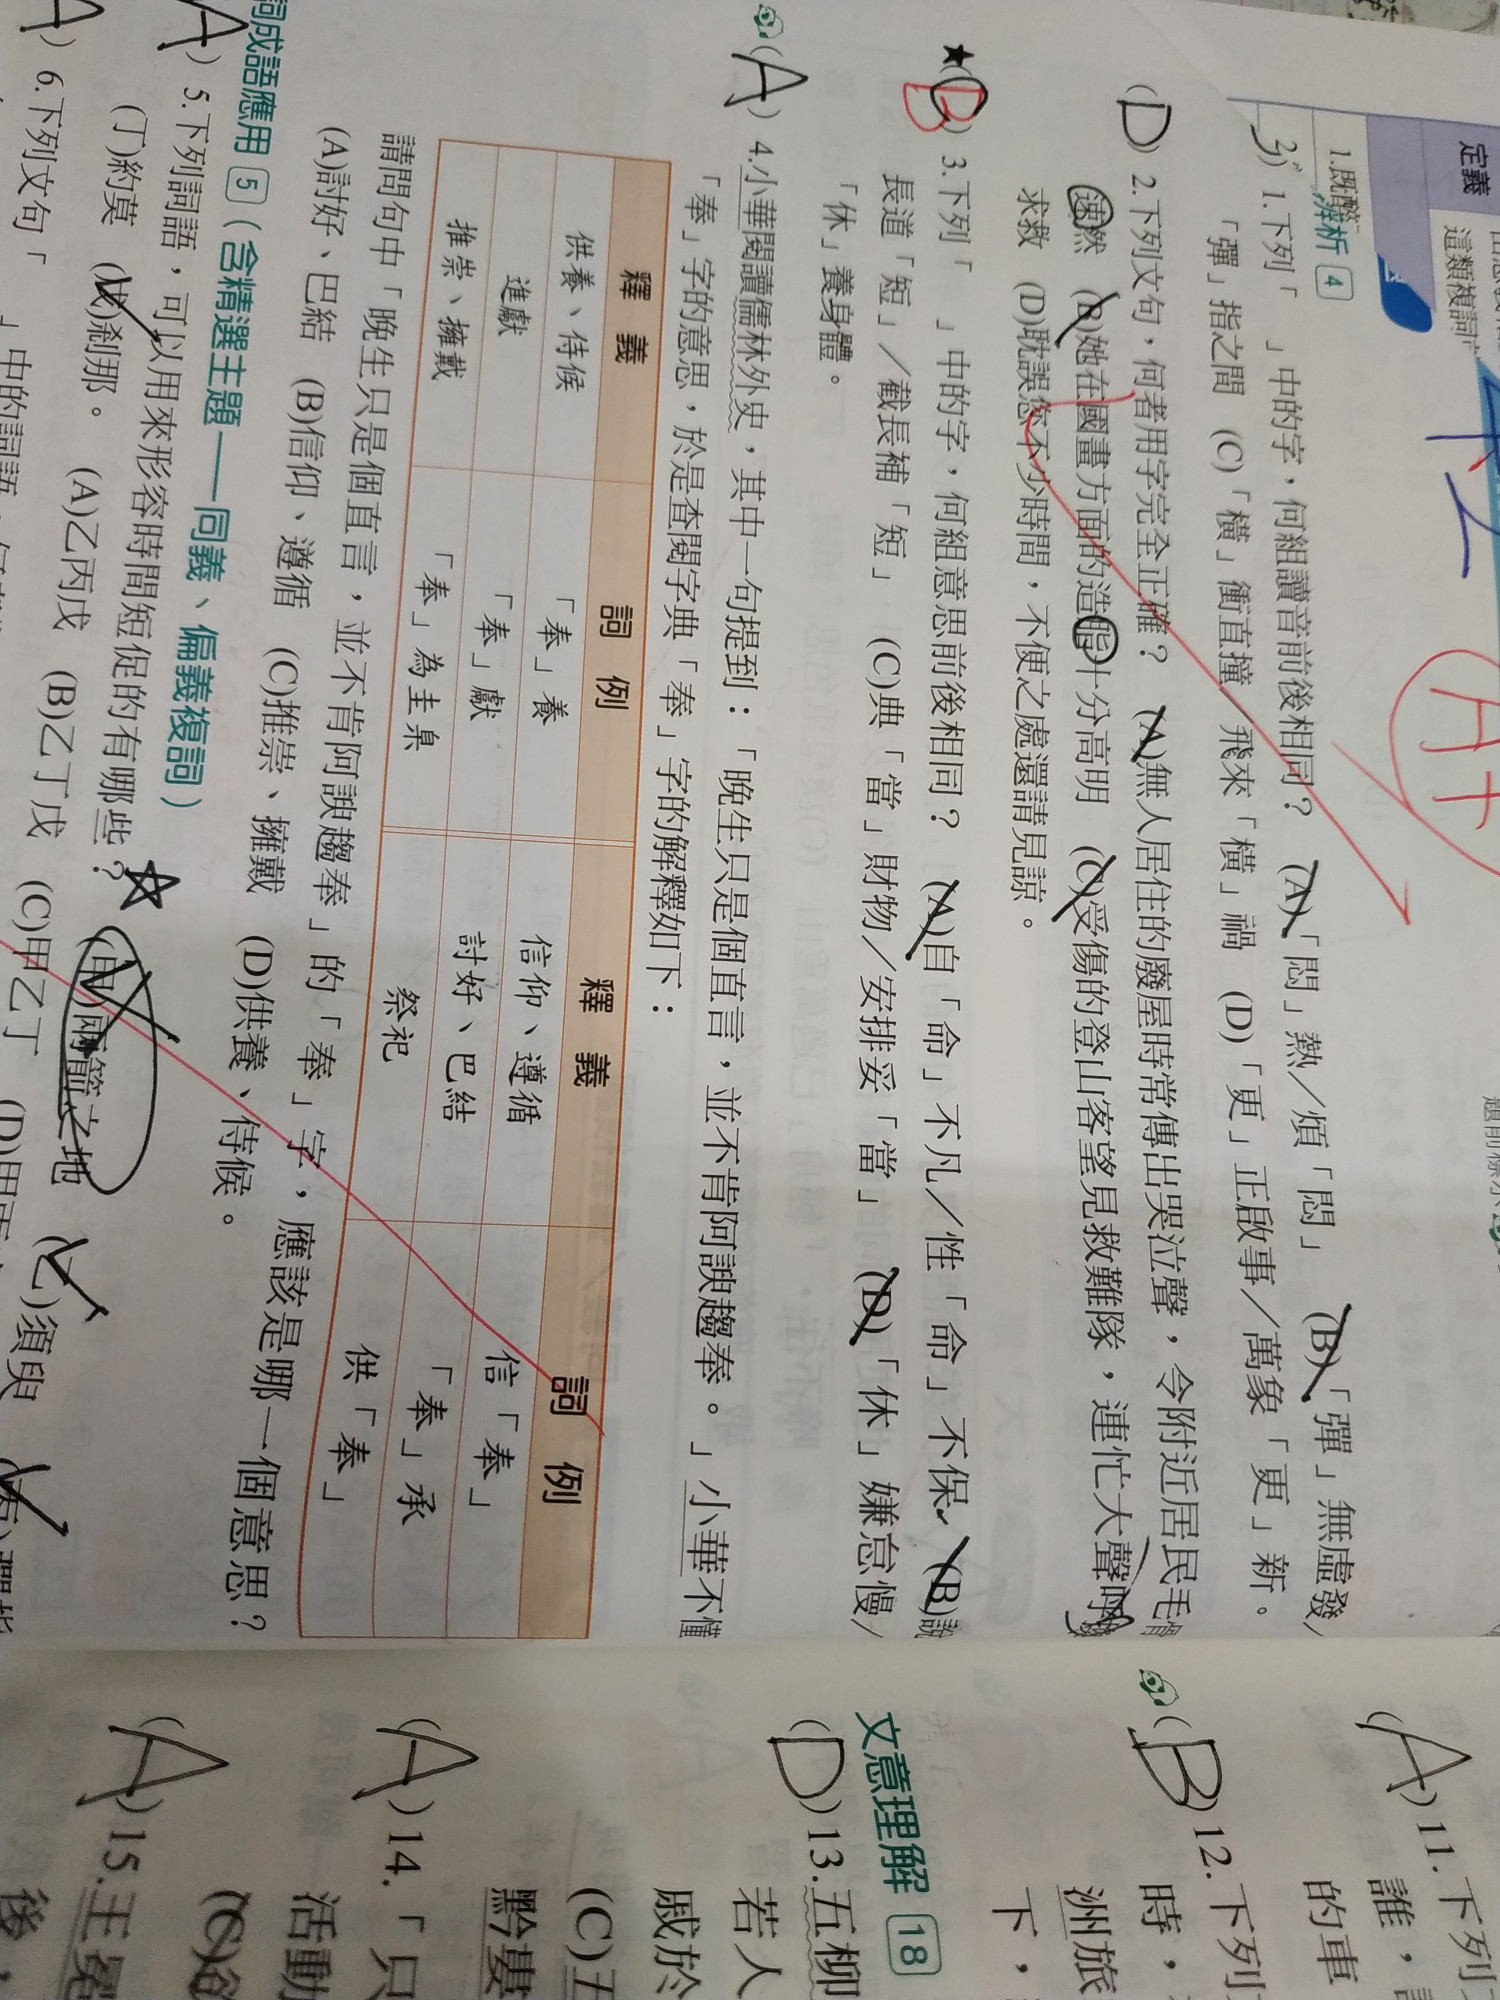 定義
這類複詞
1.既醉
辨析 4
1.下列「 」中的字，何組讀音前後相同？ (A)「悶」熱／煩「悶」 (B)「彈」無虛發／
「彈」指之間 (C)「橫」衝直撞 飛來「橫」禍 (D)「更」正啟事／萬象「更」新。
(D) 2.下列文句，何者用字完全正確？ (A)無人居住的廢屋時常傳出哭泣聲，令附近居民毛
然 (B)她在國畫方面的造脂十分高明 (C)受傷的登山客望見救難隊，連忙大聲呼
求救 (D)耽誤您不少時間，不便之處還請見諒。
★(B) 3.下列「 」中的字，何組意思前後相同？ (A)自「命」不凡／性「命」不保 (B)說
長道「短」／截長補「短」 (C)典「當」財物／安排妥「當」 (D)「休」嫌怠慢／
「休」養身體。
(A) 4.小華閱讀儒林外史，其中一句提到：「晚生只是個直言，並不肯阿諛趨奉。」小華不懂
「奉」字的意思，於是查閱字典「奉」字的解釋如下：
釋義 詞例 釋義 詞例
供養、侍候 「奉」養 信仰、遵循 信「奉」
進獻 「奉」獻 討好、巴結 「奉」承
推崇、擁戴 「奉」為圭臬 祭祀 供「奉」
請問句中「晚生只是個直言，並不肯阿諛趨奉」的「奉」字，應該是哪一個意思？
(A)討好、巴結 (B)信仰、遵循 (C)推崇、擁戴 (D)供養、侍候。
詞成語應用 5（含精選主題——同義、偏義複詞）
(A) 5.下列詞語，可以用來形容時間短促的有哪些？ ☆ (甲)兩箭之地 (乙)須臾
(丁)約莫 (戊)剎那。 (A)乙丙戊 (B)乙丁戊 (C)甲乙丁
(A) 6.下列文句「 」中的詞語，
A+
(A) 11.下列
誰，
的車
(B) 12.下列
時，
洲旅
下，
文意理解 18
(D) 13.五柳
若人
戚於
(C)五
黔婁
(A) 14.「只
活動
(C)
(A) 15.王冕
後，